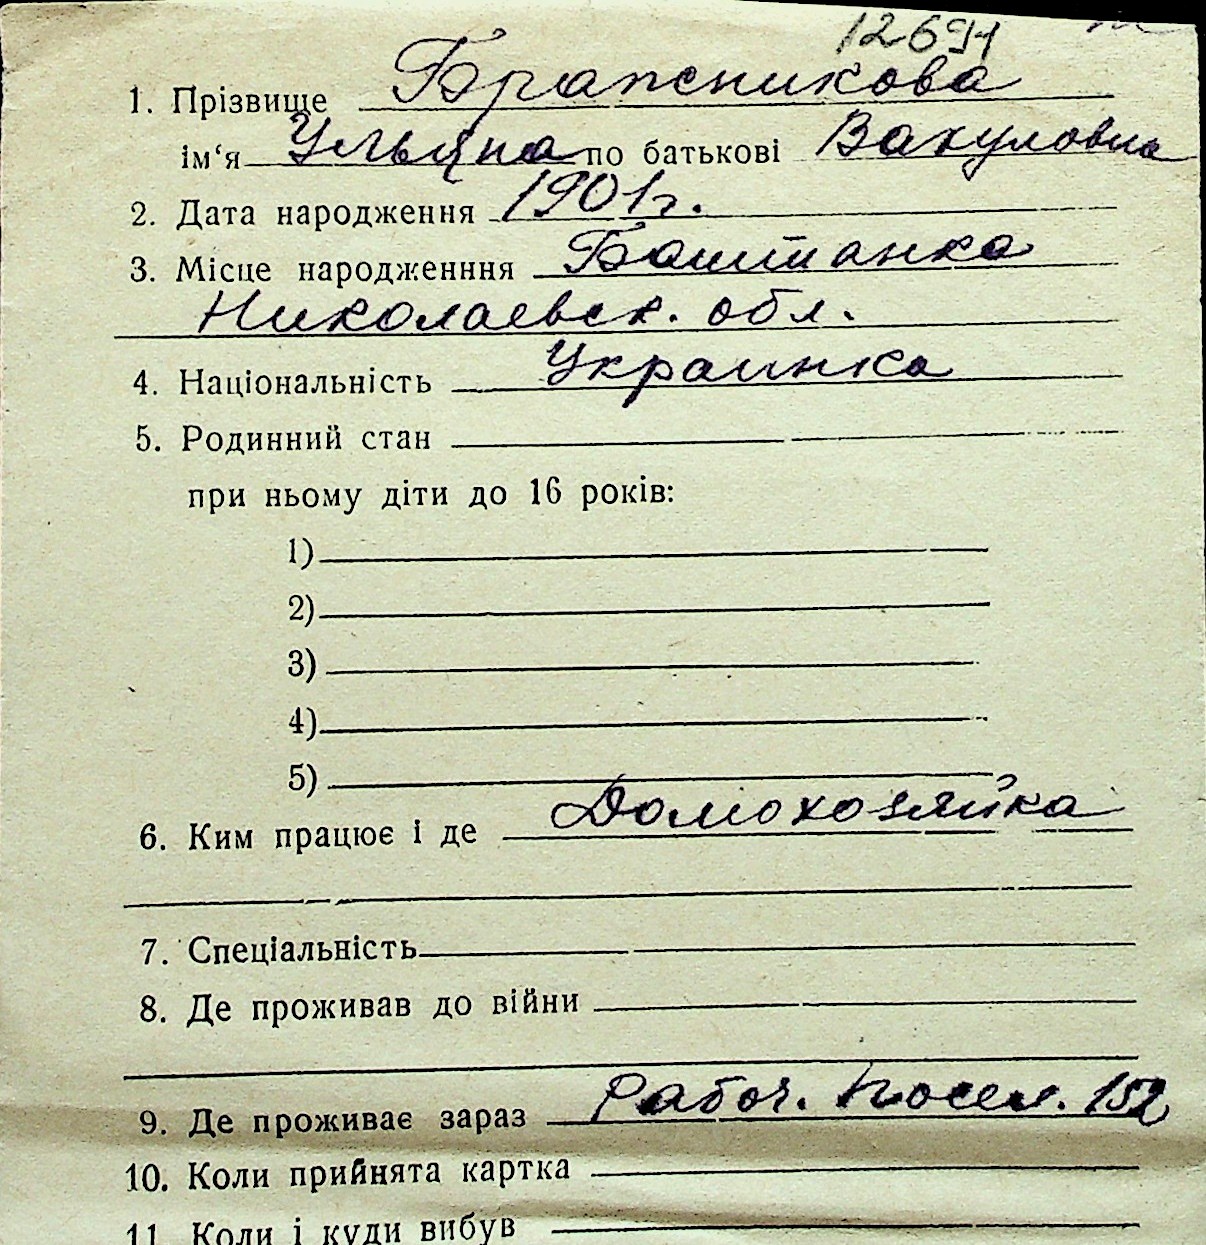 12694
1. Прізвище Бражникова
ім‘я Ульяна по батькові Вакуловна
2. Дата народження 1901г.
3. Місце народженння Баштанка
Николаевск. обл.
4. Національність Украинка
5. Родинний стан
при ньому діти до 16 років:
1)
2)
3)
4)
5)
6. Ким працює і де Домохозяйка
7. Спеціальність
8. Де проживав до війни
9. Де проживає зараз Рабоч. Посел. 152
10. Коли прийнята картка
11. Коли і куди вибув